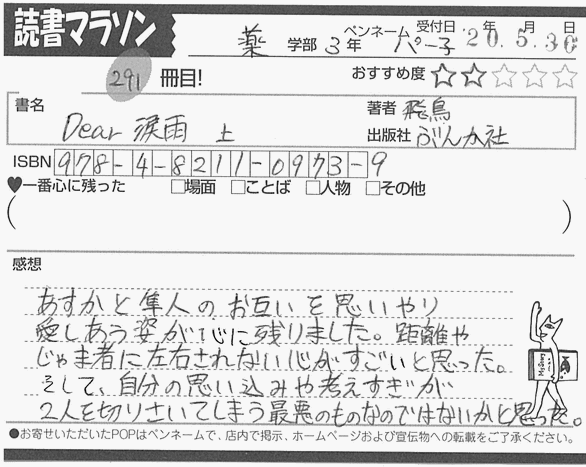 読書マラソン
薬 学部 3年 ペンネーム パー子 受付日 '20年 5.月30日
291 冊目! おすすめ度 ☆☆☆☆☆
書名 Dear 涙雨 上
著者 飛鳥
出版社 ぶんか社
ISBN 978-4-8211-0973-9
♥一番心に残った □場面 □ことば □人物 □その他
( )
感想
あすかと隼人のお互いを思いやり
愛しあう姿が心に残りました。距離や
じゃま者に左右されない心がすごいと思った。
そして、自分の思い込みや考えすぎが
2人を切りさいてしまう最悪のものなのではないかと思った。
●お寄せいただいたPOPはペンネームで、店内で掲示、ホームページおよび宣伝物への転載をご了承ください。